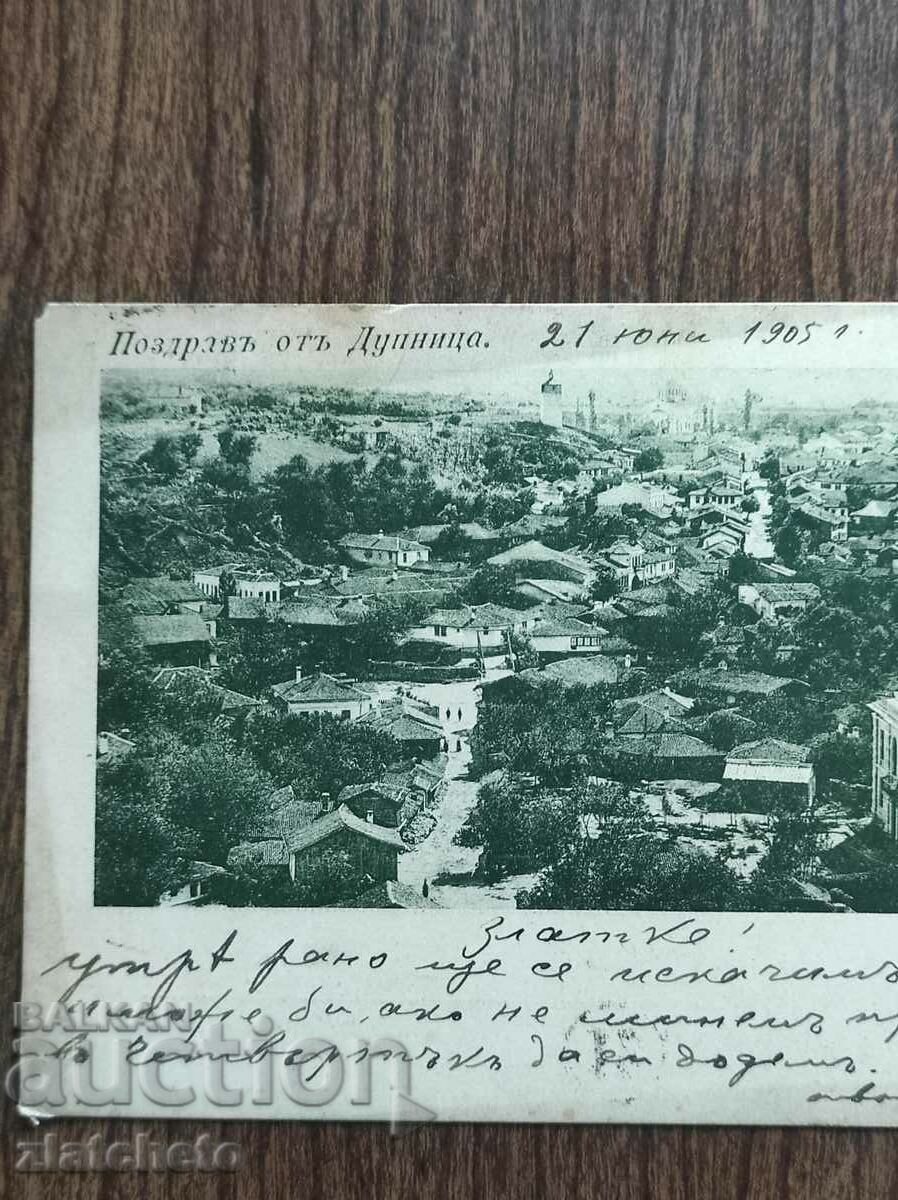 Поздравъ отъ Дупница. 21 юни 1905 г.
Златке!
утрѣ рано ще се искачимъ
може би, ако не минемъ
въ четвъртъкъ да си додемъ.
BALKAN
auction
zlatcheto